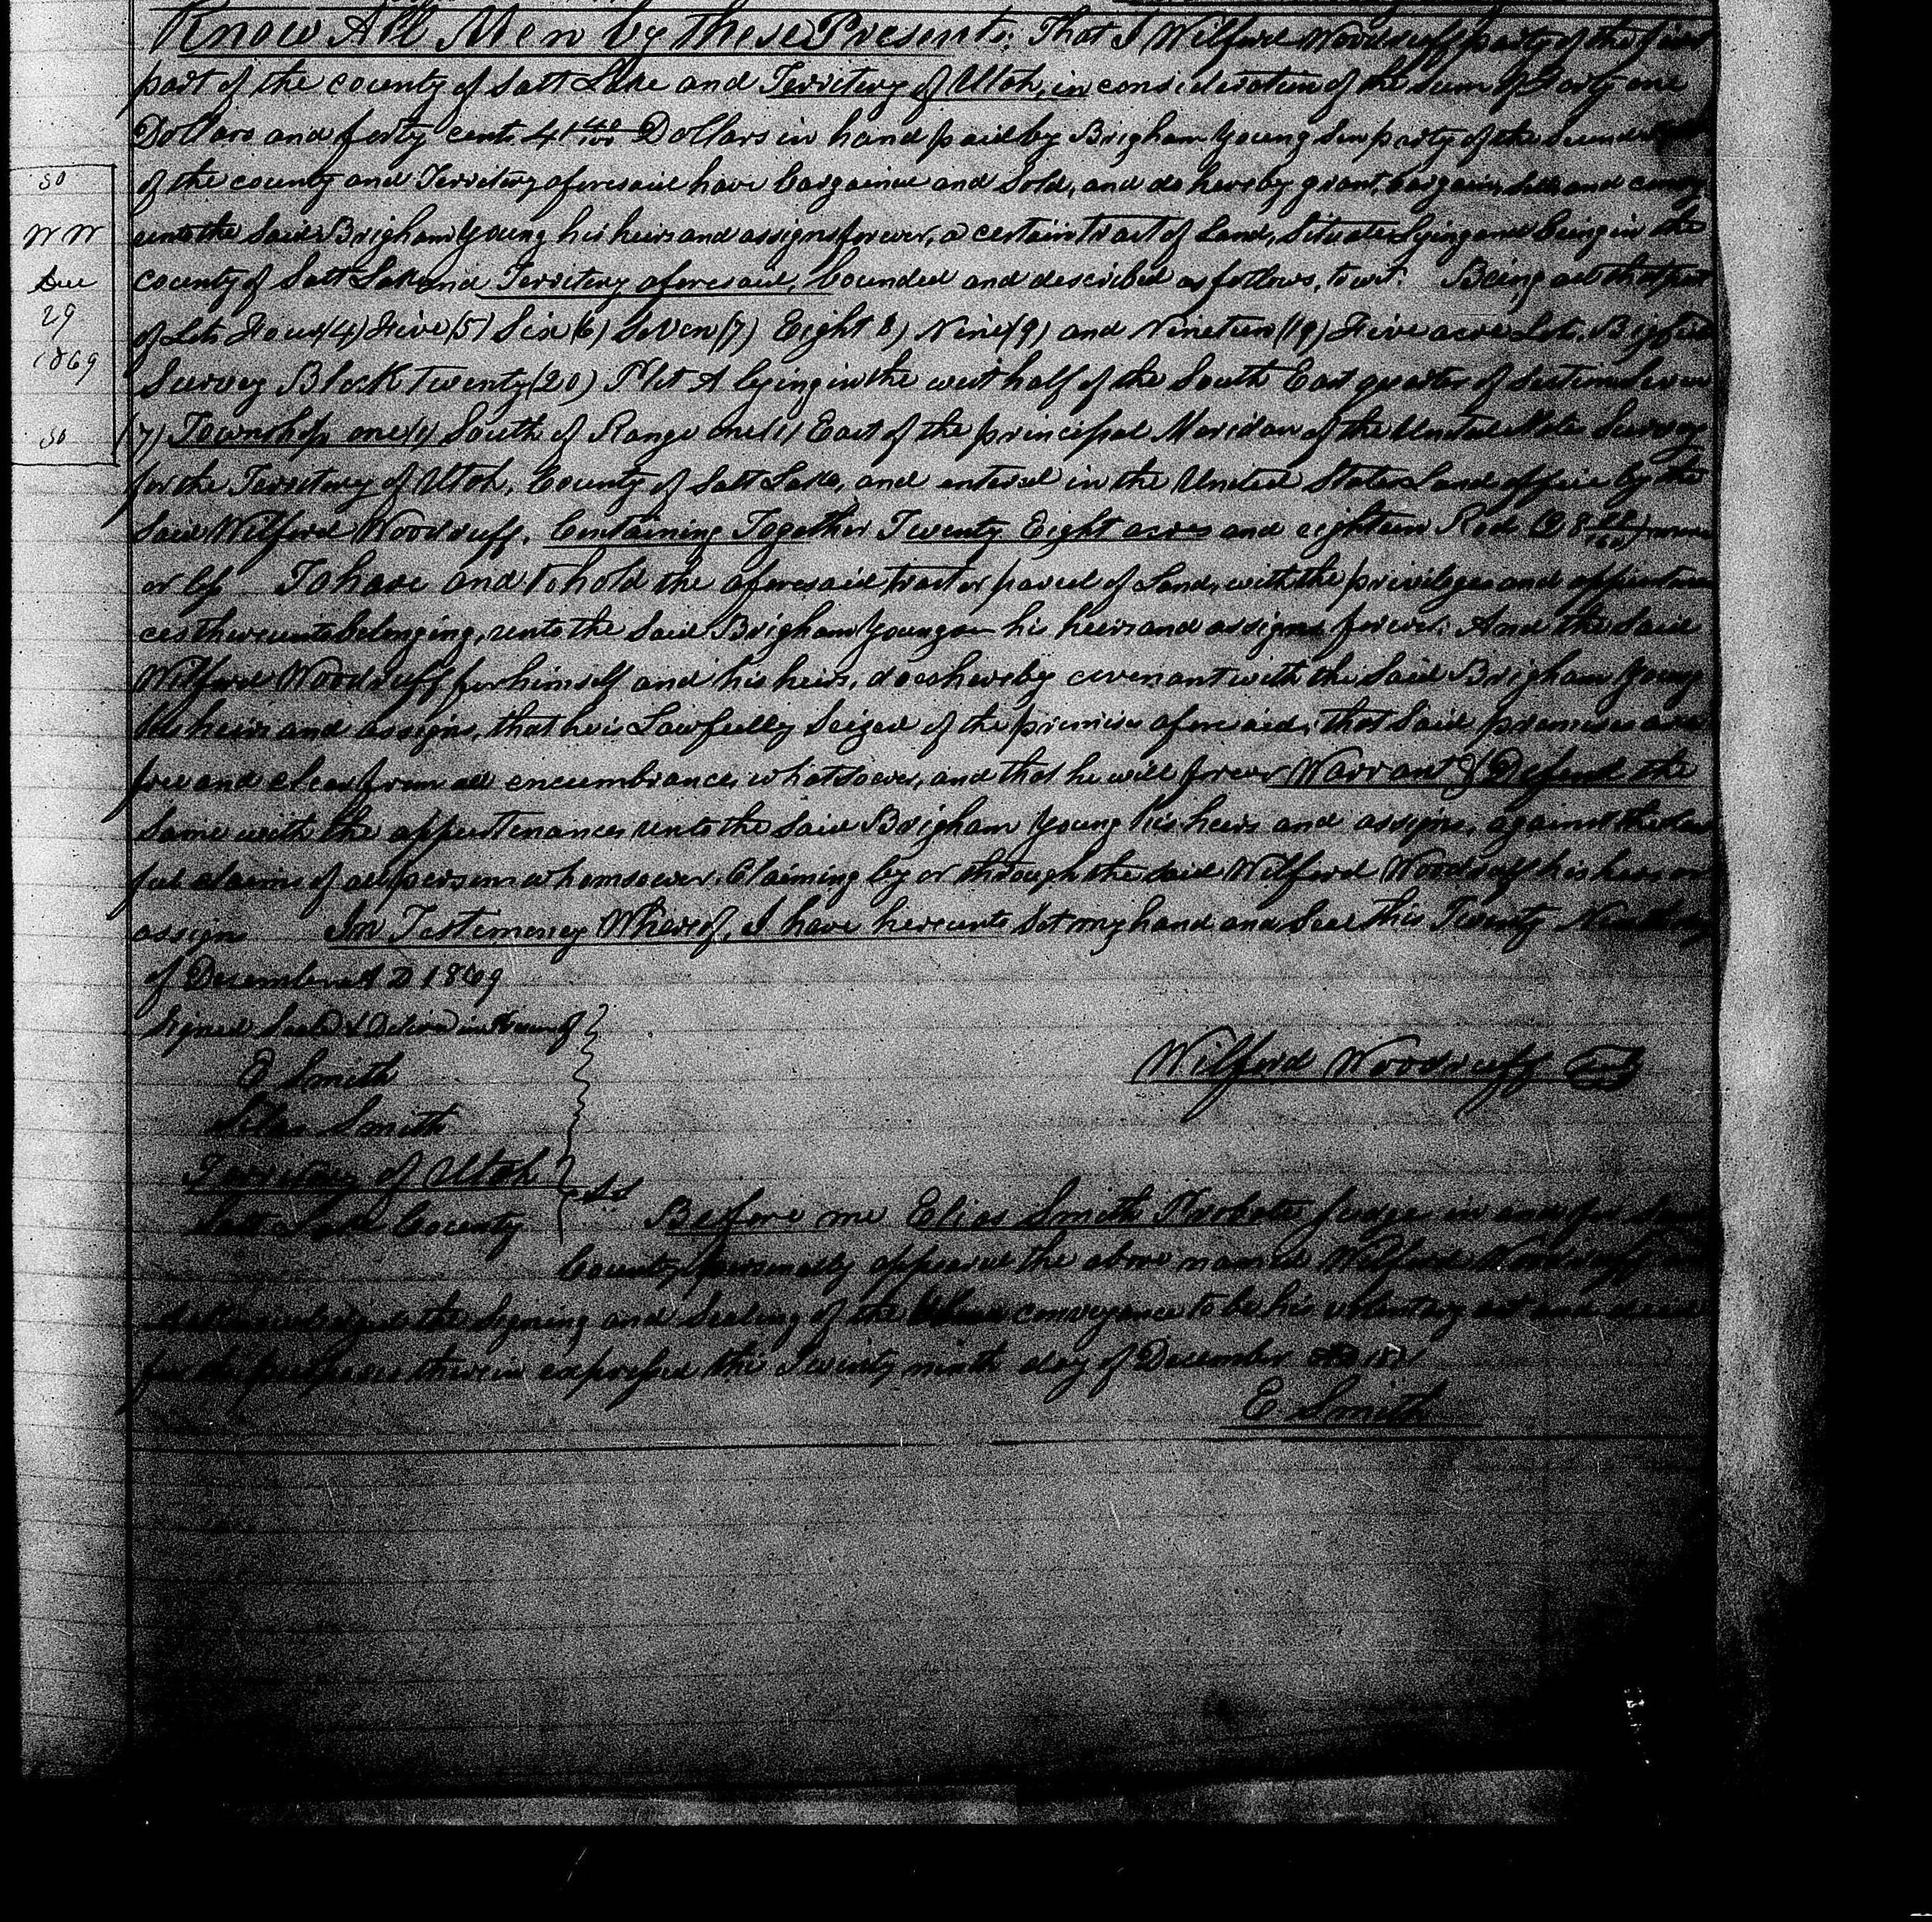 Know All Men by these Presents; That I Wilford Woodruff party of the first
part of the county of Salt Lake and Territory of Utah, in consideration of the sum of Forty one
Dollars and forty cents 41 40/100 Dollars in hand paid by Brigham Young Sen party of the Second
of the county and Territory aforesaid have bargained and Sold, and do hereby grant, bargain, Sell and convey
unto the Said Brigham Young his heirs and assigns forever, a certain tract of Land, Situate Lying and being in the
county of Salt Lake and Territory aforesaid, bounded and described as follows, to wit: Being all that part
of Lots Four (4) Five (5) Six (6) Seven (7) Eight 8) Nine (9) and Nineteen (19) Five acre Lots, Big field
Survey Block Twenty (20) Plat A lying in the west half of the South East quarter of Section Seven
(7) Township one (1) South of Range one (1) East of the principal Meridian of the United States Survey
for the Territory of Utah, County of Salt Lake, and entered in the United States Land office by the
Said Wilford Woodruff. Containing Together Twenty Eight acres and eighteen Rod more
or less To have and to hold the aforesaid tract or parcel of Land, with the privileges and appurtenan
ces thereunto belonging, unto the Said Brigham Young his heirs and assigns forever. And the Said
Wilford Woodruff for himself and his heirs, does hereby covenant with the Said Brigham Young
his heirs and assigns, that he is Lawfully Seized of the premises aforesaid, that Said premises are
free and clear from all encumbrances whatsoever, and that he will forever Warrant & Defend the
Same with the appurtenances unto the Said Brigham Young his heirs and assigns, against the law
ful claims of all persons whomsoever. Claiming by or through the said Wilford Woodruff his heirs or
assigns In Testimony Whereof, I have hereunto Set my hand and Seal this Twenty Ninth day
of December A D 1869
Signed Seald & Deliv'd in
E Smith
Wilford Woodruff
Silas Smith
Territory of Utah
SS
Salt Lake County
Before me Elias Smith Probate Judge in and for Said
County, personally appeared the above named Wilford Woodruff and
acknowledged the Signing and Sealing of the conveyance to be his voluntary act and deed
for the purposes therein expressed this Twenty ninth day of December
E Smith
So
WW
Dec
29
1869
So